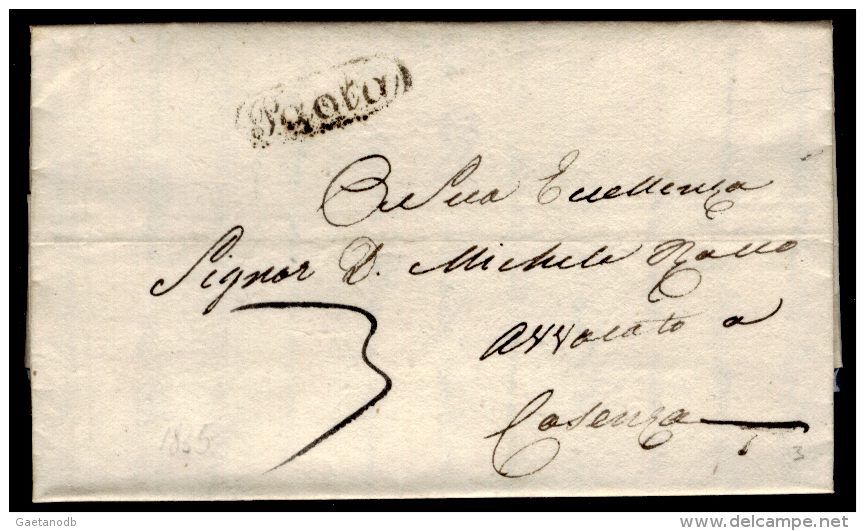 Paola
A Sua Eccellenza
Signor D. Michele
Avvocato a
Cosenza
3
1865
3
Gaetanodb
delcampe.net